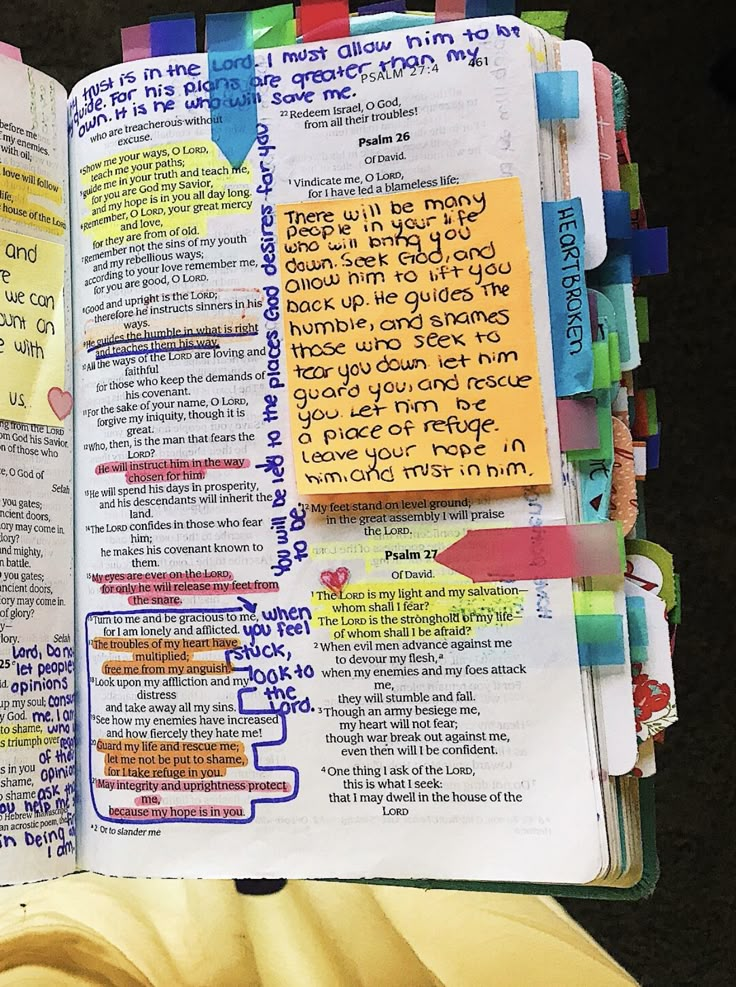 before me
my enemies.
with oil;
love will follow
life,
house of the LORD
and
we can
ount on
e with
us.
ng from the LORD
om God his Savior.
n of those who
e, O God of
Selah
you gates;
ncient doors,
ory may come in.
glory?
nd mighty,
n battle.
you gates;
ancient doors,
lory may come in.
of glory?
lory.
Selah
25
Lord, Do no
let people
opinions
me. I am
who
of the
opinio
ask th
you help me
in being
I am.
up my soul;
y God.
to shame,
s triumph over
s in you
shame,
o shame
Hebrew manuscript
an acrostic poem, the
y trust is in the Lord I must allow him to be
guide. For his plans are greater than my
own. It is he who will save me.
PSALM 27:4
461
who are treacherous without
excuse.
4 Show me your ways, O LORD,
teach me your paths;
5 guide me in your truth and teach me,
for you are God my Savior,
and my hope is in you all day long.
6 Remember, O LORD, your great mercy
and love,
for they are from of old.
7 Remember not the sins of my youth
and my rebellious ways;
according to your love remember me,
for you are good, O LORD.
8 Good and upright is the LORD;
therefore he instructs sinners in his
ways.
9 He guides the humble in what is right
and teaches them his way.
10 All the ways of the LORD are loving and
faithful
for those who keep the demands of
his covenant.
11 For the sake of your name, O LORD,
forgive my iniquity, though it is
great.
12 Who, then, is the man that fears the
LORD?
He will instruct him in the way
chosen for him.
13 He will spend his days in prosperity,
and his descendants will inherit the
land.
14 The LORD confides in those who fear
him;
he makes his covenant known to
them.
15 My eyes are ever on the LORD,
for only he will release my feet from
the snare.
16 Turn to me and be gracious to me,
for I am lonely and afflicted.
17 The troubles of my heart have
multiplied;
free me from my anguish.
18 Look upon my affliction and my
distress
and take away all my sins.
19 See how my enemies have increased
and how fiercely they hate me!
20 Guard my life and rescue me;
let me not be put to shame,
for I take refuge in you.
21 May integrity and uprightness protect
me,
because my hope is in you.
a 2 Or to slander me
you will be led to the places God desires for you
to be.
when
you feel
stuck,
look to
the
Lord.
22 Redeem Israel, O God,
from all their troubles!
Psalm 26
Of David.
1 Vindicate me, O LORD,
for I have led a blameless life;
There will be many
people in your life
who will bring you
down. Seek God, and
allow him to lift you
back up. He guides the
humble, and shames
those who seek to
tear you down. let him
guard you, and rescue
you. Let him be
a place of refuge.
leave your hope in
him, and trust in him.
12 My feet stand on level ground;
in the great assembly I will praise
the LORD.
Psalm 27
Of David.
1 The LORD is my light and my salvation—
whom shall I fear?
The LORD is the stronghold of my life—
of whom shall I be afraid?
2 When evil men advance against me
to devour my flesh,a
when my enemies and my foes attack
me,
they will stumble and fall.
3 Though an army besiege me,
my heart will not fear;
though war break out against me,
even then will I be confident.
4 One thing I ask of the LORD,
this is what I seek:
that I may dwell in the house of the
LORD
HEARTBROKEN